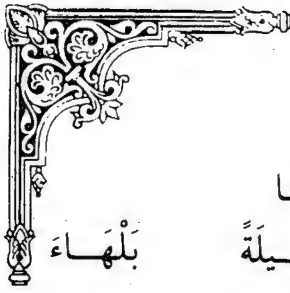 ا
يلَةً بَلْهَاءَ